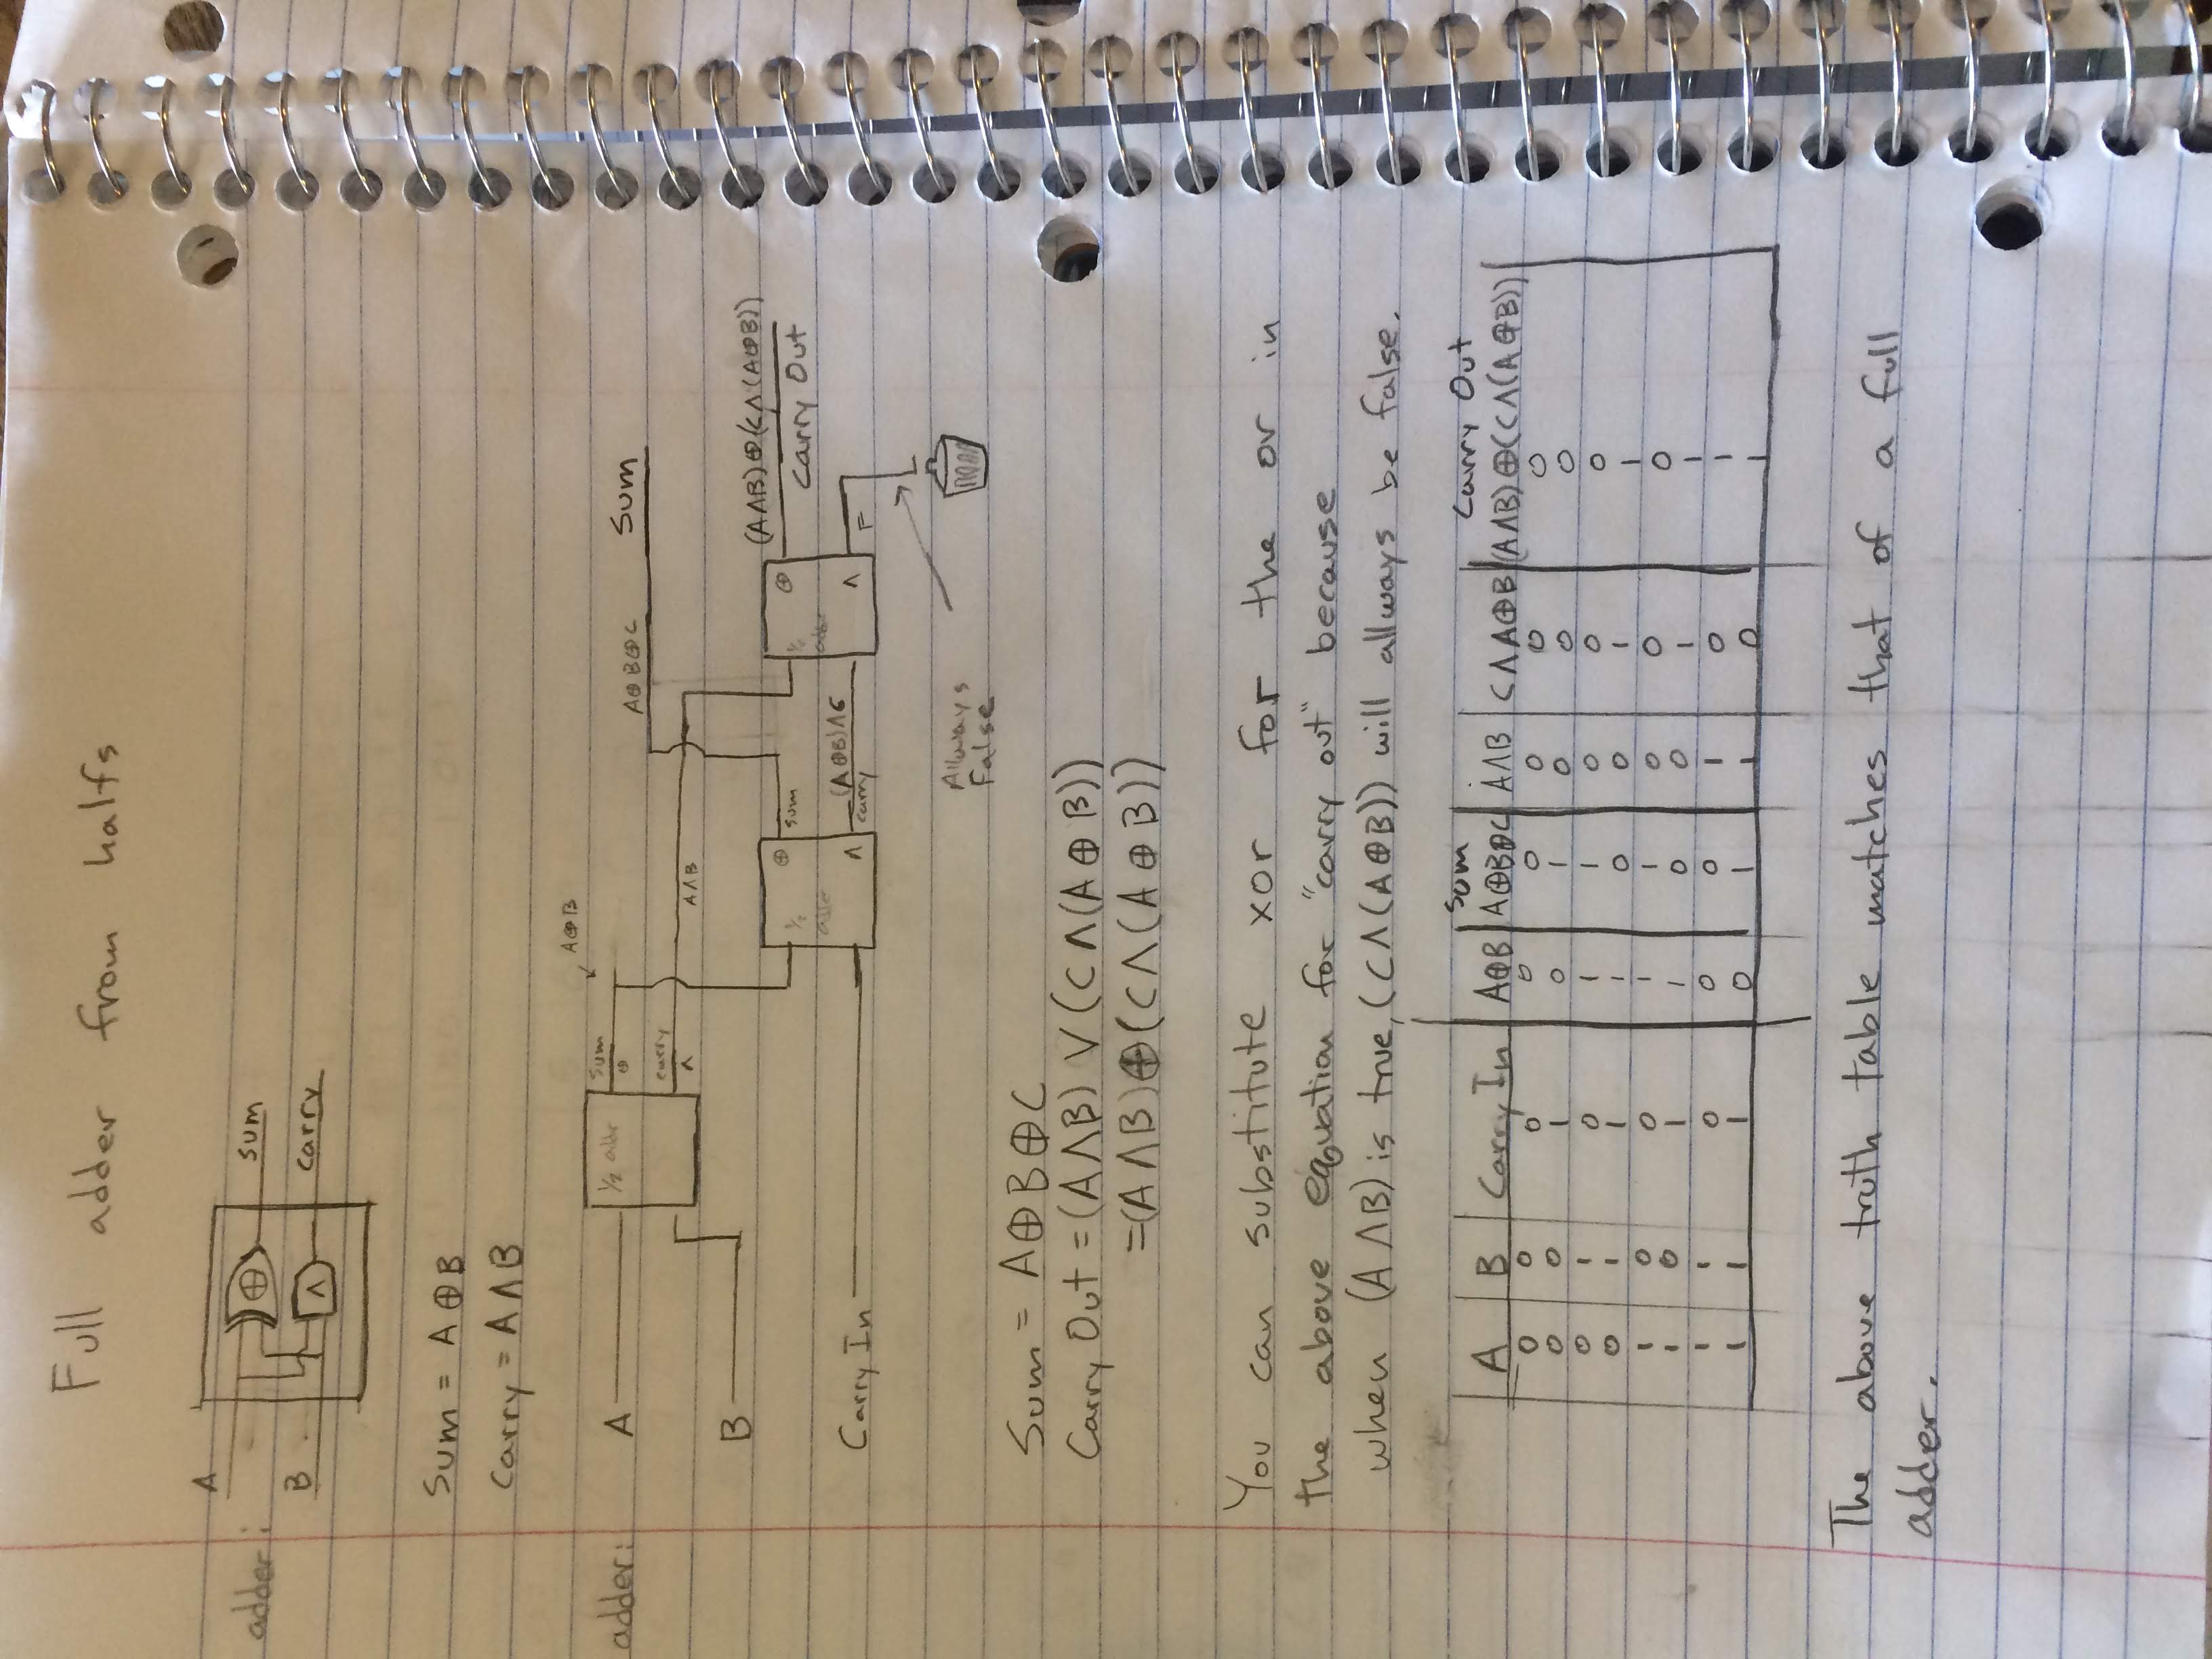 Full adder from halfs
A
adder:
sum
B
carry
Sum = A⊕B
Carry = A∧B
A⊕B
adder:
A
½ addr
sum
⊕
A⊕B⊕C
Sum
carry
∧
A∧B
B
(A∧B)⊕(C∧(A⊕B))
½ adder
⊕
sum
½ adder
⊕
Carry Out
Carry In
∧
(A⊕B)∧C
carry
∧
F
Allways
False
Sum = A⊕B⊕C
Carry Out = (A∧B) ∨ (C∧(A⊕B))
=(A∧B)⊕(C∧(A⊕B))
You can substitute xor for the or in
the above equation for "carry out" because
when (A∧B) is true, (C∧(A⊕B)) will allways be false.
Sum Carry Out
A B Carry In A⊕B A⊕B⊕C A∧B C∧A⊕B (A∧B)⊕(C∧(A⊕B))
0 0 0 0 0 0 0 0
0 0 1 0 1 0 0 0
0 1 0 1 1 0 0 0
0 1 1 1 0 0 1 1
1 0 0 1 1 0 0 0
1 0 1 1 0 0 1 1
1 1 0 0 0 1 0 1
1 1 1 0 1 1 0 1
The above truth table matches that of a full
adder.